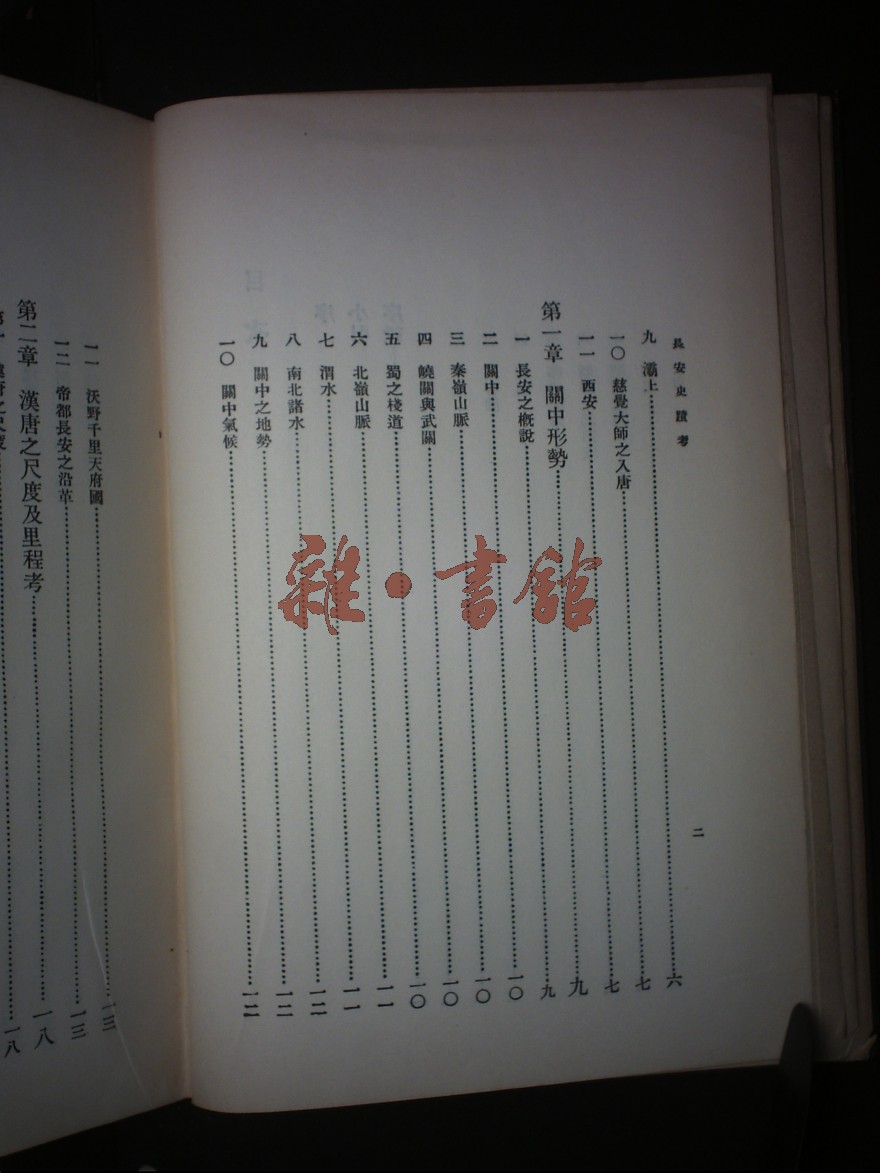 長安史蹟考
二
九 灞上……六
一〇 慈覺大師之入唐……七
一一 西安……七
第一章 關中形勢……九
一 長安之概說……九
二 關中……一〇
三 秦嶺山脈……一〇
四 嶢關與武關……一〇
五 蜀之棧道……一〇
六 北嶺山脈……一一
七 渭水……一一
八 南北諸水……一二
九 關中之地勢……一二
一〇 關中氣候……一二
一一 沃野千里天府國……一三
一二 帝都長安之沿革……一三
第二章 漢唐之尺度及里程考……一八
一八
雜·書館